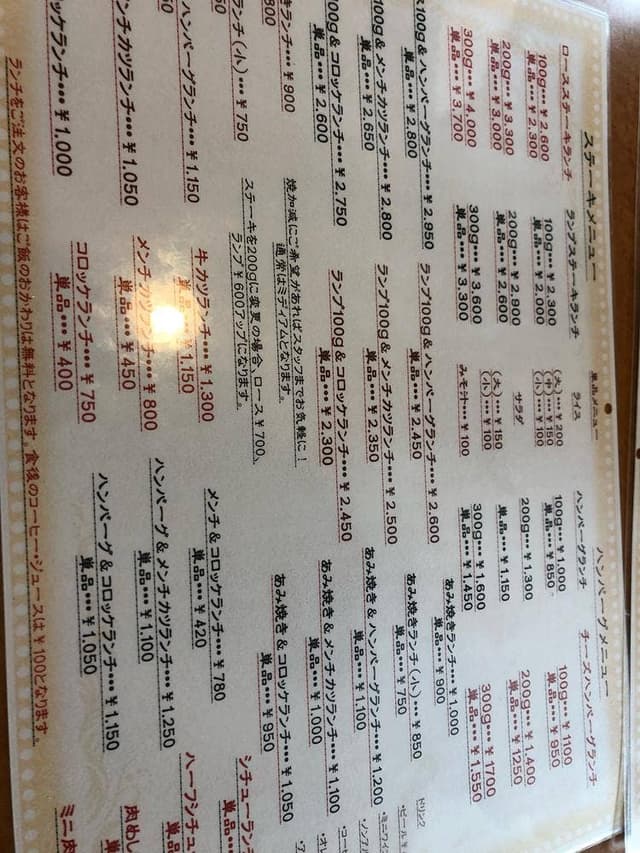 ステーキメニュー
ロースステーキランチ
100g…¥2,600
単品…¥2,300
200g…¥3,300
単品…¥3,000
300g…¥4,000
単品…¥3,700
ランプステーキランチ
100g…¥2,300
単品…¥2,000
200g…¥2,900
単品…¥2,600
300g…¥3,600
単品…¥3,300
単品メニュー
ライス
(大)…¥200
(中)…¥150
(小)…¥100
サラダ
(大)…¥150
(小)…¥100
みそ汁…¥100
ハンバーグメニュー
ハンバーグランチ
100g…¥1,000
単品…¥850
200g…¥1,300
単品…¥1,150
300g…¥1,600
単品…¥1,450
チーズハンバーグランチ
100g…¥1100
単品…¥950
200g…¥1,400
単品…¥1250
300g…¥1700
単品…¥1,550
100g&ハンバーグランチ…¥2,950
単品…¥2,800
100g&メンチカツランチ…¥2,800
単品…¥2,650
100g&コロッケランチ…¥2,750
単品…¥2,600
ランプ100g&ハンバーグランチ…¥2,600
単品…¥2,450
ランプ100g&メンチカツランチ…¥2,500
単品…¥2,350
ランプ100g&コロッケランチ…¥2,450
単品…¥2,300
焼加減にご希望があればスタッフまでお気軽に!
通常はミディアムとなります。
ステーキを200gに変更の場合、ロース¥700、
ランプ¥600アップになります。
あみ焼きランチ…¥1,000
単品…¥900
あみ焼きランチ(小)…¥850
単品…¥750
あみ焼き&ハンバーグランチ…¥1,200
単品…¥1,100
あみ焼き&メンチカツランチ…¥1,100
単品…¥1,000
あみ焼き&コロッケランチ…¥1,050
単品…¥950
ランチ…¥900
800
ランチ(小)…¥750
ハンバーグランチ…¥1,150
メンチカツランチ…¥1,050
コロッケランチ…¥1,000
牛カツランチ…¥1,300
単品…¥1,150
メンチカツランチ…¥800
単品…¥450
コロッケランチ…¥750
単品…¥400
メンチ&コロッケランチ…¥780
単品…¥420
ハンバーグ&メンチカツランチ…¥1,250
単品…¥1,100
ハンバーグ&コロッケランチ…¥1,150
単品…¥1,050
ドリンク
・ビール
シチューラン
単品
ハーフシチュー
単品
肉めし
単品
ミニ肉
ランチをご注文のお客様はご飯のおかわりは無料となります。食後のコーヒー・ジュースは¥100となります。